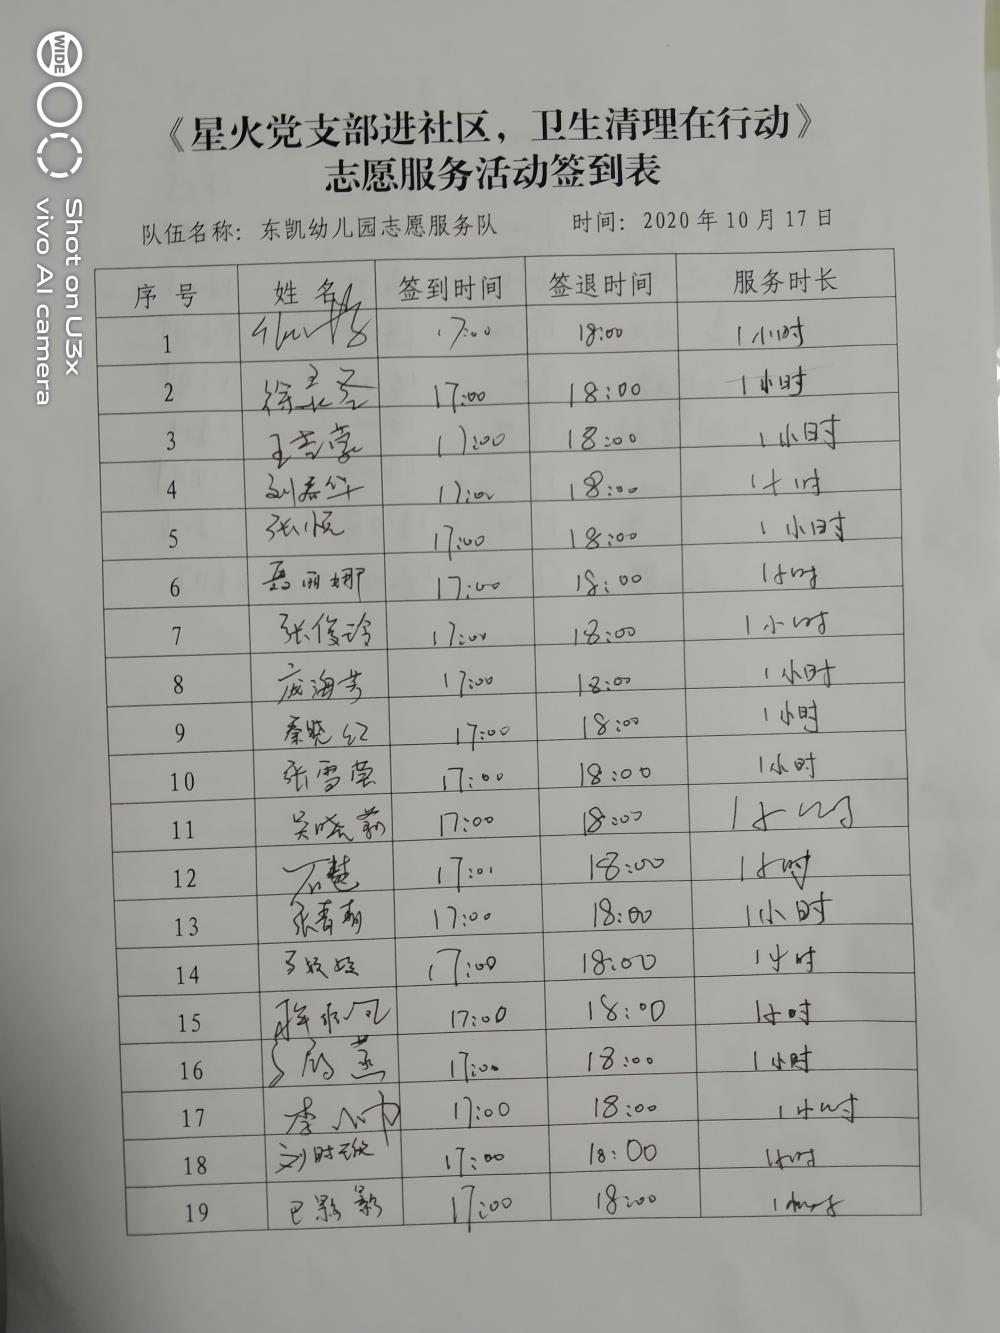 WIDE
Shot on U3x
vivo AI camera
《星火党支部进社区，卫生清理在行动》
志愿服务活动签到表
队伍名称：东凯幼儿园志愿服务队 时间：2020年10月17日
序号 姓名 签到时间 签退时间 服务时长
1 17:00 18:00 1小时
2 17:00 18:00 1小时
3 17:00 18:00 1小时
4 刘春华 17:00 18:00 1小时
5 张悦 17:00 18:00 1小时
6 17:00 18:00 1小时
7 张俊玲 17:00 18:00 1小时
8 庞海芳 17:00 18:00 1小时
9 秦晓红 17:00 18:00 1小时
10 张雪莹 17:00 18:00 1小时
11 吴晓莉 17:00 18:00 1小时
12 石慧 17:01 18:00 1小时
13 张青 17:00 18:00 1小时
14 17:00 18:00 1小时
15 17:00 18:00 1小时
16 17:00 18:00 1小时
17 李 17:00 18:00 1小时
18 刘时 17:00 18:00 1小时
19 巴影影 17:00 18:00 1小时